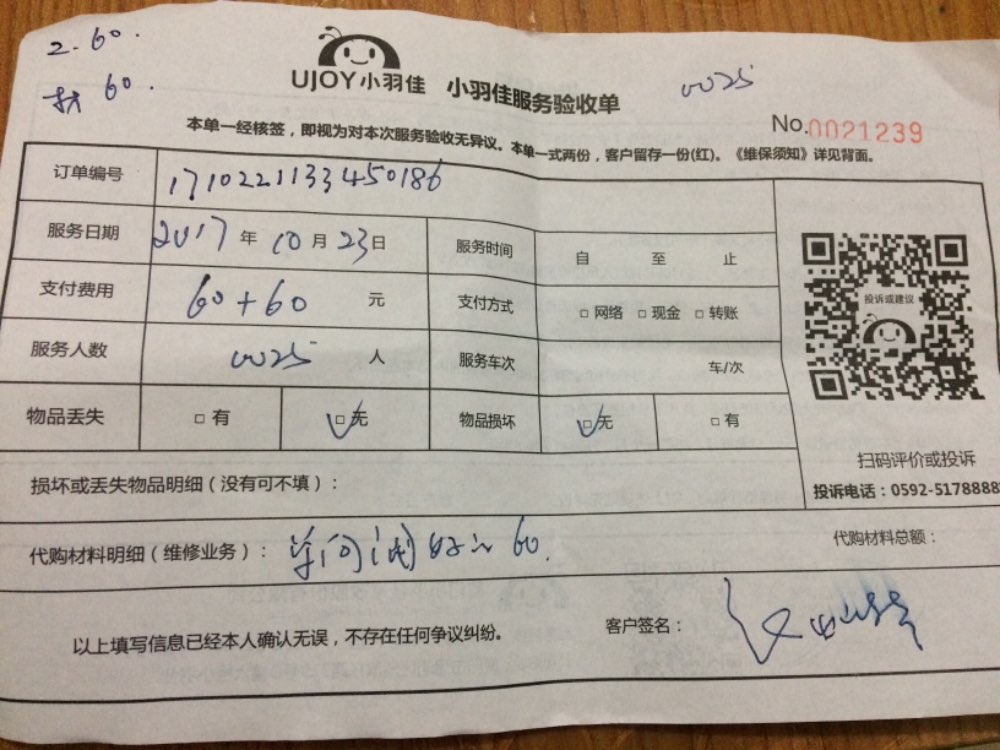 2.60.
60.
UJOY小羽佳 小羽佳服务验收单
0025
No.0021239
本单一经核签，即视为对本次服务验收无异议。本单一式两份，客户留存一份(红)。《维保须知》详见背面。
订单编号 1710221133450186
服务日期 2017 年 10 月 23 日 服务时间 自 至 止
支付费用 60+60 元 支付方式 □网络 □现金 □转账
投诉或建议
服务人数 0025 人 服务车次 车/次
物品丢失 □有 □无 物品损坏 □无 □有
扫码评价或投诉
损坏或丢失物品明细（没有可不填）：
投诉电话：0592-5178888
代购材料明细（维修业务）： 60. 代购材料总额：
以上填写信息已经本人确认无误，不存在任何争议纠纷。 客户签名：